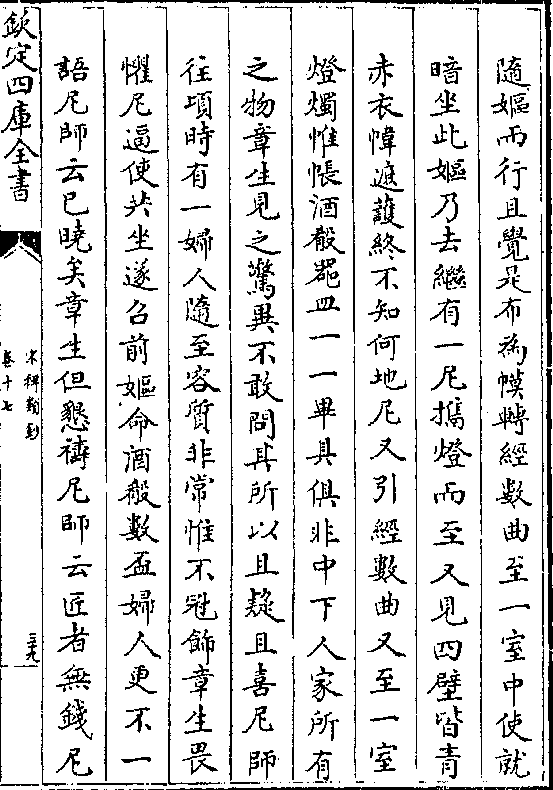 隨嫗而行且覺是布為幙轉經數曲至一室中使就
暗坐此嫗乃去繼有一尼攜燈而至又見四壁皆青
赤衣幃遮護終不知何地尼又引經數曲又至一室
燈燭帷帳酒殽器皿一一畢具俱非中下人家所有
之物章生見之驚異不敢問其所以且疑且喜尼師
往項時有一婦人隨至容質非常惟不冠飾章生畏
懼尼逼使共坐遂召前嫗命酒殽數盃婦人更不一
語尼師云已曉矣章生但懇禱尼師云匠者無錢尼
欽定四庫全書
宋稗類鈔
卷十七
三十九